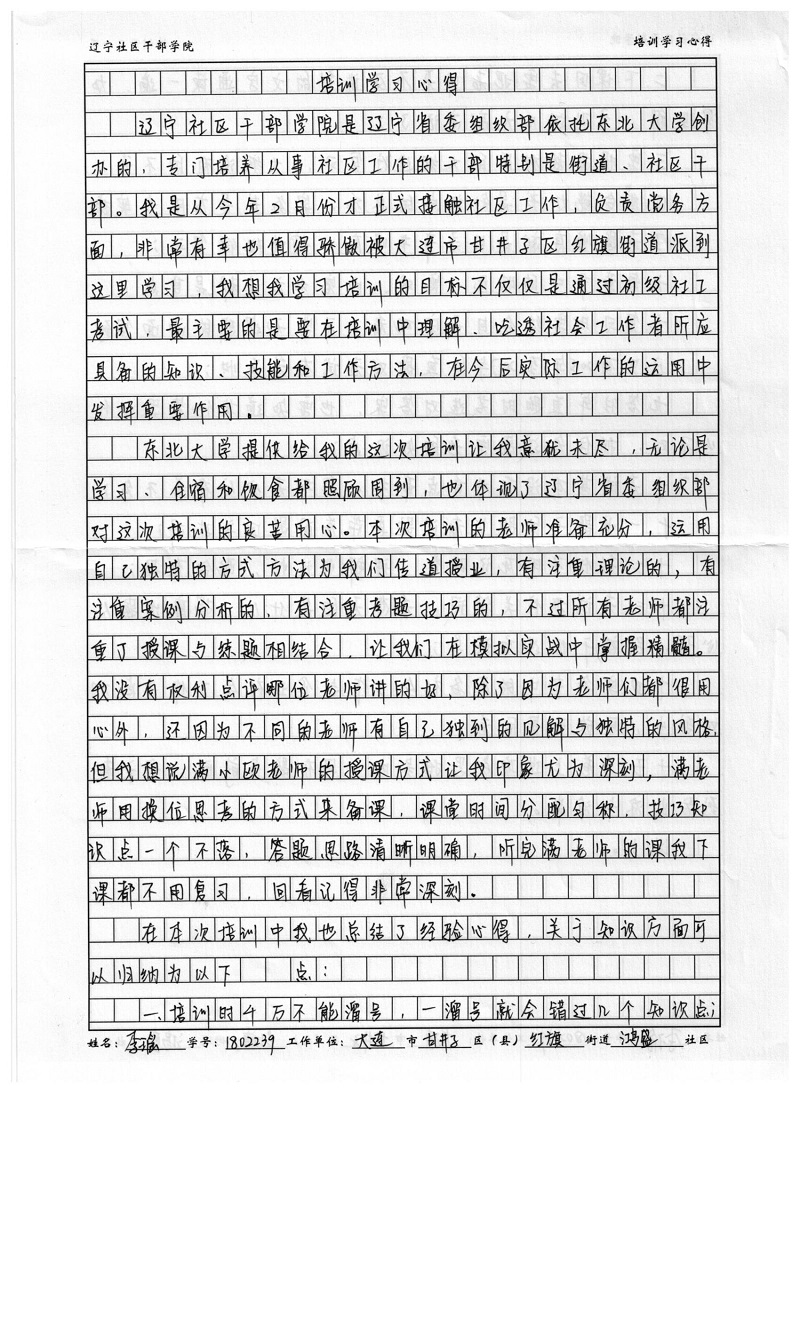 辽宁社区干部学院 培训学习心得
培训学习心得
辽宁社区干部学院是辽宁省委组织部依托东北大学创
办的，专门培养从事社区工作的干部特别是街道、社区干
部。我是从今年2月份才正式接触社区工作，负责党务方
面，非常有幸也值得骄傲被大连市甘井子区红旗街道派到
这里学习，我想我学习培训的目标不仅仅是通过初级社工
考试，最主要的是要在培训中理解、吃透社会工作者所应
具备的知识、技能和工作方法，在今后实际工作的运用中
发挥重要作用。
东北大学提供给我的这次培训让我意犹未尽，无论是
学习、住宿和饮食都照顾周到，也体现了辽宁省委组织部
对这次培训的良苦用心。本次培训的老师准备充分，运用
自己独特的方式方法为我们传道授业，有注重理论的，有
注重案例分析的，有注重考题技巧的，不过所有老师都注
重了授课与练题相结合，让我们在模拟实战中掌握精髓。
我没有权利点评哪位老师讲的好，除了因为老师们都很用
心外，还因为不同的老师有自己独到的见解与独特的风格，
但我想说满小欧老师的授课方式让我印象尤为深刻，满老
师用换位思考的方式来备课，课堂时间分配匀称，技巧知
识点一个不落，答题思路清晰明确，听完满老师的课我下
课都不用复习，回看记得非常深刻。
在本次培训中我也总结了经验心得，关于知识方面可
以归纳为以下 点：
一、培训时千万不能溜号，一溜号就会错过几个知识点；
姓名：李瑞 学号：1802239 工作单位：大连 市 甘井子 区（县） 红旗 街道 鸿盛 社区